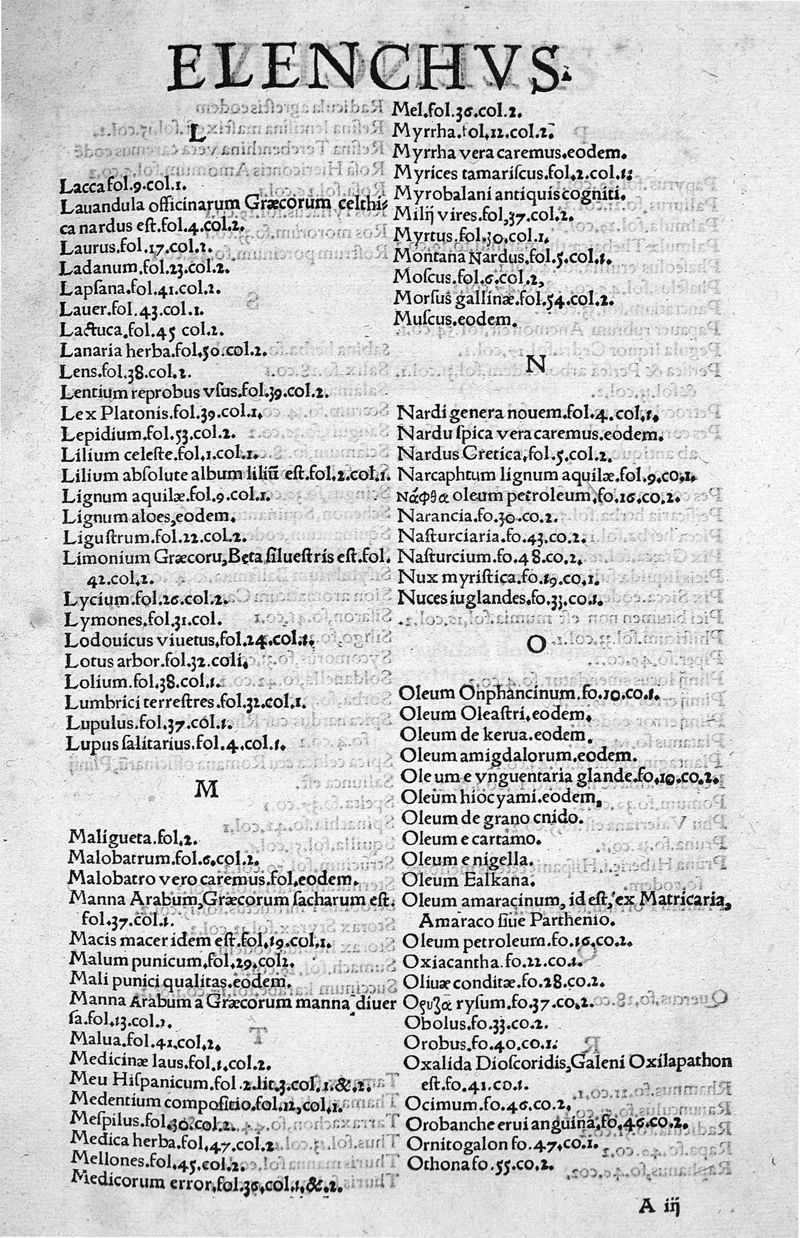 ELENCHVS.
L
Lacca fol.9.col.1.
Lauandula officinarum Græcorum celthi-
ca nardus est.fol.4.col.2.
Laurus.fol.17.col.2.
Ladanum.fol.23.col.2.
Lapsana.fol.41.col.2.
Lauer.fol.43.col.1.
Lactuca.fol.45 col.2.
Lanaria herba.fol.50.col.2.
Lens.fol.38.col.2.
Lentium reprobus vsus.fol.39.col.2.
Lex Platonis.fol.39.col.1.
Lepidium.fol.53.col.2.
Lilium celeste.fol.1.col.1.
Lilium absolute album liliũ est.fol.2.col.1.
Lignum aquilæ.fol.9.col.1.
Lignum aloes.eodem.
Ligustrum.fol.22.col.2.
Limonium Græcoru,Beta siluestris est.fol.
42.col.2.
Lycium.fol.26.col.2.
Lymones.fol.31.col.
Lodouicus viuetus.fol.24.col.1.
Lotus arbor.fol.32.coli.
Lolium.fol.38.col.1.
Lumbrici terrestres.fol.32.col.1.
Lupulus.fol.37.col.1.
Lupus salitarius.fol.4.col.1.
M
Maligueta.fol.2.
Malobatrum.fol.6.col.2.
Malobatro vero caremus.fol.eodem.
Manna Arabum,Græcorum sacharum est.
fol.37.col.1.
Macis macer idem est.fol.19.col.1.
Malum punicum.fol.29.col2.
Mali punici qualitas.eodem.
Manna Arabum a Græcorum manna diuer
sa.fol.13.col.1.
Malua.fol.41.col.2.
Medicinæ laus.fol.1.col.2.
Meu Hispanicum.fol.2.lit.3.col.1.&.2.
Medentium compositio.fol.12.col.1.
Mespilus.fol.30.col.2.
Medica herba.fol.47.col.2
Mellones.fol.45.col.2.
Medicorum error.fol.36.col.1.&.2.
Mel.fol.36.col.2.
Myrrha.fol.12.col.2.
Myrrha vera caremus.eodem.
Myrices tamariscus.fol.2.col.1.
Myrobalani antiquis cogniti.
Milij vires.fol.37.col.2.
Myrtus.fol.30.col.1.
Montana Nardus.fol.5.col.1.
Moscus.fol.6.col.2.
Morsus gallinæ.fol.54.col.2.
Muscus.eodem.
N
Nardi genera nouem.fol.4.col.1.
Nardu spica vera caremus.eodem.
Nardus Cretica.fol.5.col.2.
Narcaphtum lignum aquilæ.fol.9.co.1.
νάφθα oleum petroleum.fo.16.co.2.
Narancia.fo.30.co.2.
Nasturciaria.fo.43.co.2.
Nasturcium.fo.48.co.2.
Nux myristica.fo.19.co.1.
Nuces iuglandes.fo.33.co.1.
O
Oleum Onphancinum.fo.10.co.1.
Oleum Oleastri.eodem.
Oleum de kerua.eodem.
Oleum amigdalorum.eodem.
Oleum e vnguentaria glande.fo.10.co.2.
Oleum hiocyami.eodem.
Oleum de grano cnido.
Oleum e cartamo.
Oleum e nigella.
Oleum Ealkana.
Oleum amaracinum, id est, ex Matricaria,
Amaraco siue Parthenio.
Oleum petroleum.fo.16.co.2.
Oxiacantha.fo.22.co.1.
Oliuæ conditæ.fo.28.co.2.
Ορυζα rysum.fo.37.co.2.
Obolus.fo.33.co.2.
Orobus.fo.40.co.1.
Oxalida Dioscoridis,Galeni Oxilapathon
est.fo.41.co.1.
Ocimum.fo.46.co.2.
Orobanche erui anguina.fo.46.co.2.
Ornitogalon fo.47.co.1.
Othona fo.55.co.2.
A iij